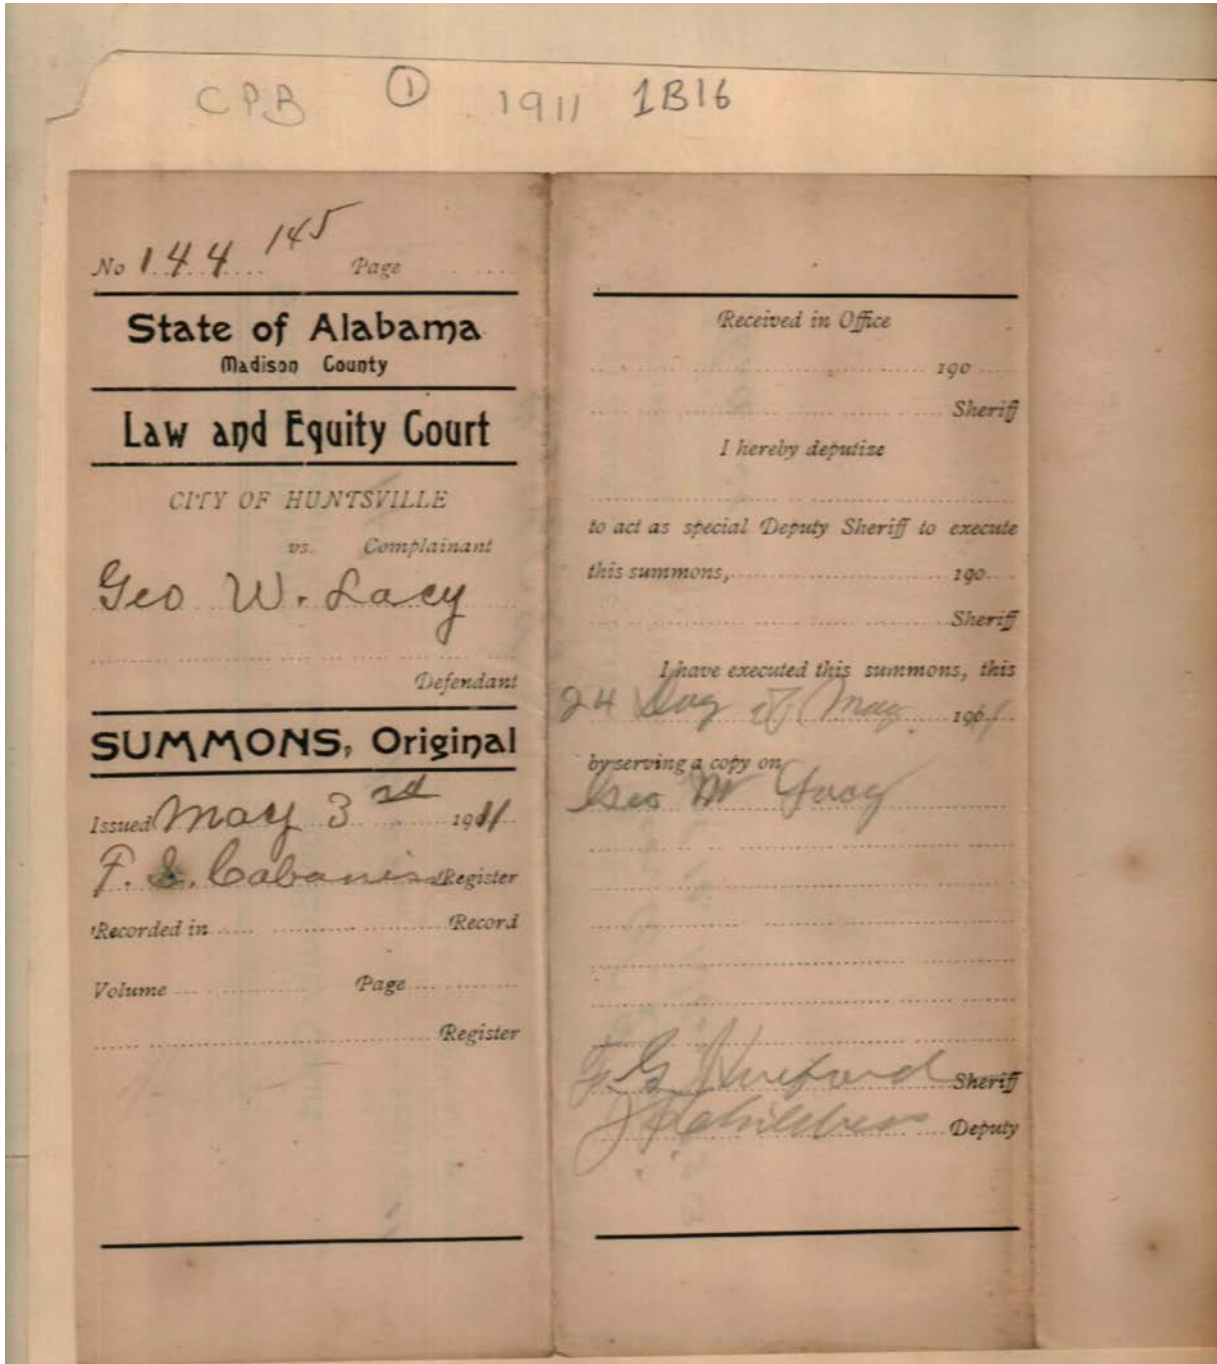 CPB ① 1911 1B16
No 144 145 Page
State of Alabama
Madison County
Law and Equity Court
CITY OF HUNTSVILLE
vs. Complainant
Geo W. Lacy
Defendant
SUMMONS, Original
Issued May 3rd 1911
Register
Recorded in Record
Volume Page
Register
Received in Office
190
Sheriff
I hereby deputize
to act as special Deputy Sheriff to execute
this summons, 190
Sheriff
I have executed this summons, this
24 Day of May 1911
by serving a copy on
Geo W Lacy
Sheriff
Deputy